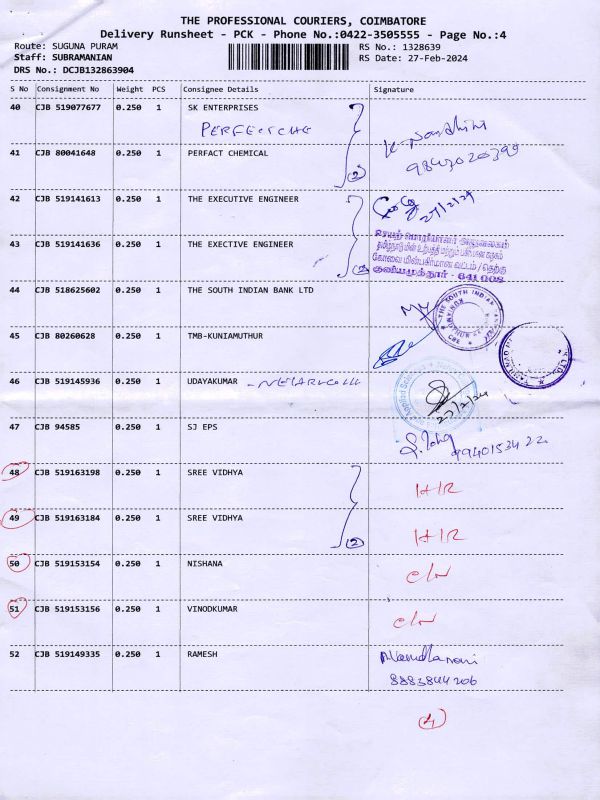 THE PROFESSIONAL COURIERS, COIMBATORE
Delivery Runsheet - PCK - Phone No.:0422-3505555 - Page No.:4
Route: SUGUNA PURAM RS No.: 1328639
Staff: SUBRAMANIAN RS Date: 27-Feb-2024
DRS No.: DCJB132863904
S No Consignment No Weight PCS Consignee Details Signature
40 CJB 519077677 0.250 1 SK ENTERPRISES
41 CJB 80041648 0.250 1 PERFACT CHEMICAL
2
42 CJB 519141613 0.250 1 THE EXECUTIVE ENGINEER 27/2/24
43 CJB 519141636 0.250 1 THE EXECTIVE ENGINEER
கோவை மின்பகிர்மான வட்டம்/தெற்கு
குனியமுத்தூர் - 641 008
44 CJB 518625602 0.250 1 THE SOUTH INDIAN BANK LTD
45 CJB 80260628 0.250 1 TMB-KUNIAMUTHUR
46 CJB 519145936 0.250 1 UDAYAKUMAR 27/2/24
47 CJB 94585 0.250 1 SJ EPS
48 CJB 519163198 0.250 1 SREE VIDHYA
49 CJB 519163184 0.250 1 SREE VIDHYA
2
50 CJB 519153154 0.250 1 NISHANA
51 CJB 519153156 0.250 1 VINODKUMAR
52 CJB 519149335 0.250 1 RAMESH
8883844206
4